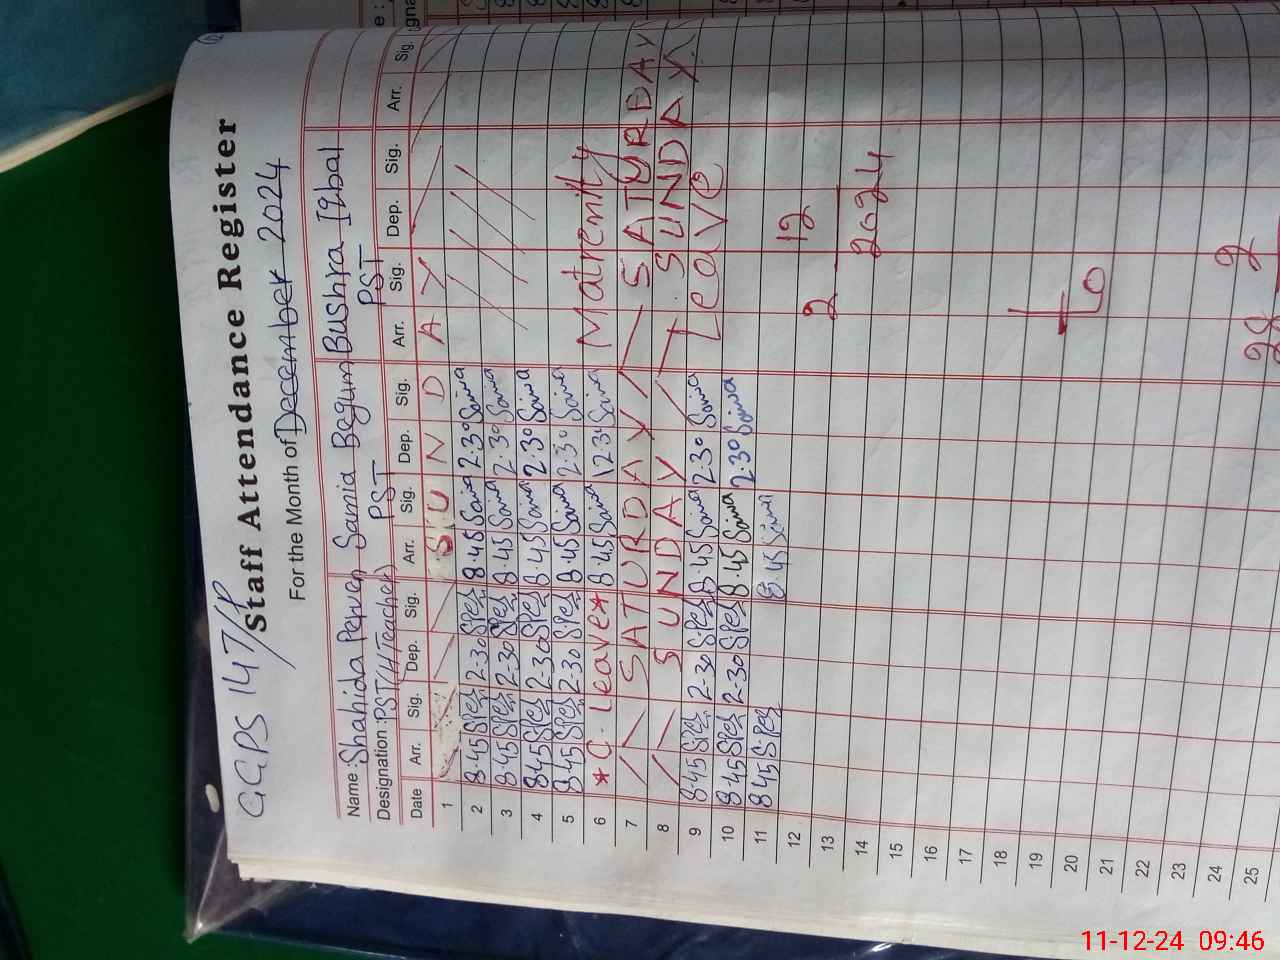 GGPS 147/P
Staff Attendance Register
For the Month of December 2024
Name: Shahida Perven Samia Begum Bushra Iqbal
Designation: PST(H/Teacher) PST PST
Date Arr. Sig. Dep. Sig. Arr. Sig. Dep. Sig. Arr. Sig. Dep. Sig. Arr. Sig.
1 S U N D A Y
2 8.45 Spez 2.30 Spez 8.45 Samia 2.30 Samia
3 8.45 Spez 2.30 Spez 8.45 Samia 2.30 Samia
4 8.45 Spez 2.30 Spez 8.45 Samia 2.30 Samia
5 8.45 Spez 2.30 Spez 8.45 Samia 2.30 Samia
6 *C. Leave* 8.45 Samia 12.30 Samia Matrenity
7 SATURDAY SATURDAY
8 SUNDAY SUNDAY
9 8.45 Spez 2.30 Spez 8.45 Samia 2.30 Samia Leave
10 8.45 Spez 2.30 Spez 8.45 Samia 2.30 Samia
11 8.45 Spez 8.45 Samia
12 12
13 2
14 2024
15
16
17
18
19
20 To
21
22
23
24 2
25 28
11-12-24 09:46